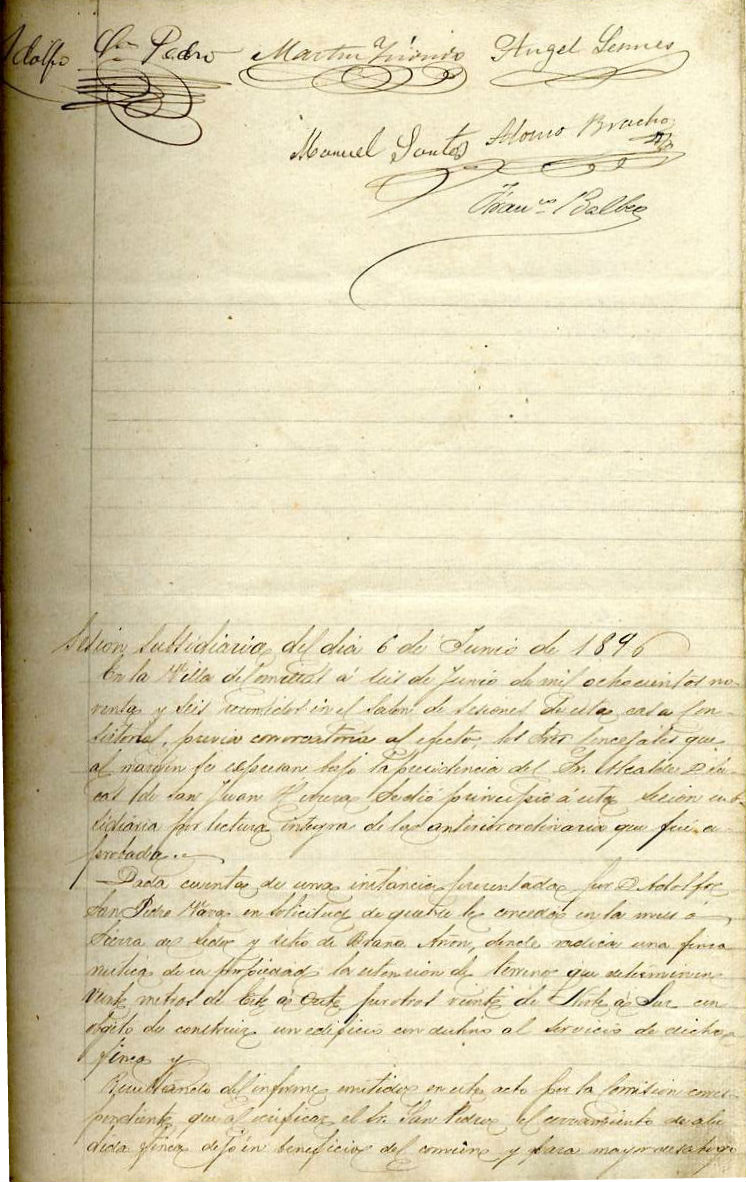 Adolfo Sn Pedro Martin Angel
Manuel Santos Alonso Bracho
Franco Balbe
Sesion subsidiaria del dia 6 de Junio de 1896
En la Villa de á seis de Junio de mil ochocientos no-
venta y seis reconsidos en el Salon de sesiones de esta casa Con-
sistorial, previa convocatoria al efecto, los Sres Concejales que
al margen se espresan bajo la presidencia del Sr. Alcalde D
de San Juan se dió principio á esta Sesion sub-
sidiaria por lectura integra de la anterior ordinaria que fué a-
probada.
Dada cuenta de una instancia presentada por D Adolfo
San Pedro en solicitud de que se le conceda en la
Sierra de y sitio de Brana donde radica una finca
rustica de su propiedad la estension de terreno que determinen
veinte metros de Este á Oeste por otros veinte de Norte á Sur con
objeto de construir un edificio con destino al servicio de dicha
finca y
Resultando del informe emitido en este acto por la Comision corres-
pondiente que al verificar el Sr. San Pedro el cerramiento de alu-
dida finca dejó en beneficio del comun y para mayor desahogo